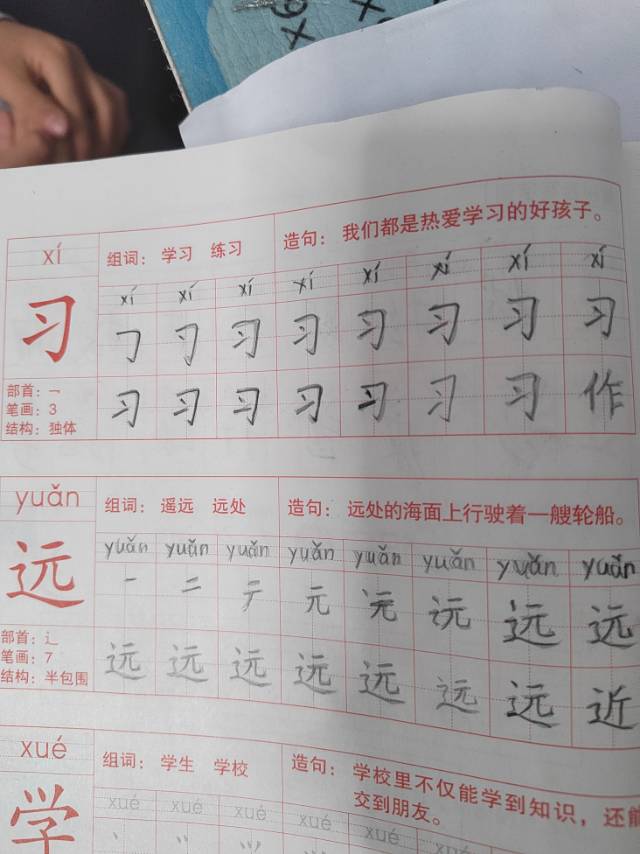 xí
组词： 学习 练习
造句： 我们都是热爱学习的好孩子。
xí xí xí xí xí xí xí xí
习
习 习 习 习 习 习
部首：乛
笔画：3
结构：独体
习 习 习 习 习 习 习 作
yuǎn
组词： 遥远 远处
造句： 远处的海面上行驶着一艘轮船。
yuǎn yuǎn yuǎn yuǎn yuǎn yuǎn yuǎn yuǎn
远
一 二 元 远 远
部首：辶
笔画：7
结构：半包围
远 远 远 远 远 远 远 近
xué
组词： 学生 学校
造句： 学校里不仅能学到知识，还
交到朋友。
xué xué xué xué xué xué
学